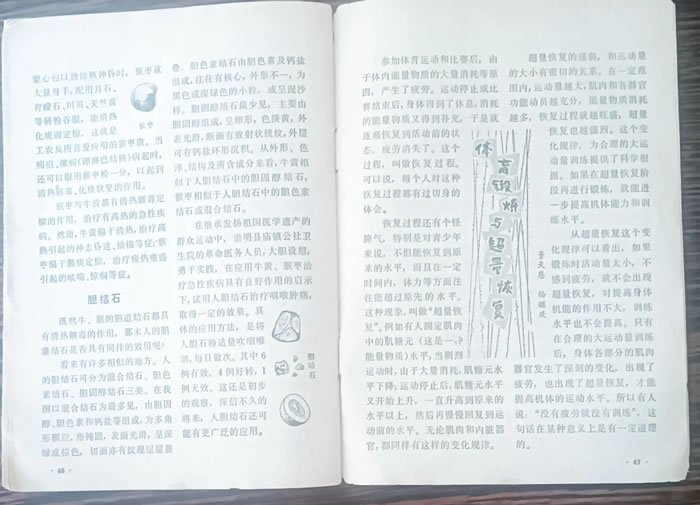 蒙心包以致昏厥神昏时，猴枣就
大显身手，配用月石、
青礞石、川贝、天竺黄
等研粉吞服，能清热
化痰定惊，这就是
工农兵所喜爱应用的猴枣散。当
瘰疬、痰核(即淋巴结核)病起时，
还可以服用猴枣粉一分，以起到
清热散毒、化痰软坚的作用。
猴枣与牛黄都有清热解毒定
惊的作用，治疗有高热的急性疾
病。然而，牛黄偏于清热，治疗高
热引起的神志昏迷、惊搐等症；猴
枣偏于豁痰定惊，治疗痰热壅盛
引起的咳喘、惊痫等症。
猴枣
胆结石
既然牛、猴的胆道结石都具
有清热解毒的作用。那末人的胆
囊结石是否具有同样的效用呢？
看来有许多相似的地方。人
的胆结石可分为混合结石、胆色
素结石、胆固醇结石三类。在我
国以混合结石为最多见，由胆固
醇、胆色素和钙盐等组成，为多角
形颗粒，角钝圆，表面光滑，呈深
绿或棕色，切面亦有纹理层层裹
·46·
叠。胆色素结石由胆色素及钙盐
组成，往往有核心，外形不一，为
黑色或深绿色的小粒，或呈泥沙
样。胆固醇结石最少见，主要由
胆固醇组成，呈卵形，色淡黄，外
表光滑，断面有放射状线纹，外层
可有钙盐环形沉积。从外形、色
泽、结构及所含成分来看，牛黄相
似于人胆结石中的胆固醇结石，
猴枣相似于人胆结石中的胆色素
结石或混合结石。
在继承发扬祖国医学遗产的
群众运动中，崇明县庙镇公社卫
生院的革命医务人员，大胆设想，
勇于实践，在应用牛黄、猴枣治
疗急性疾病具有良好作用的启示
下，试用人胆结石治疗咽喉肿痛，
取得一定的效果。具
体的应用方法，是将
人胆石粉适量吹咽喉
部，每日数次。其中6
例有效，4例好转，1
例无效。这还是初步
的观察，深信不久的
将来，人胆结石还可
能有更广泛的应用。
胆结石
参加体育运动和比赛后，由
于体内能量物质的大量消耗等原
因，产生了疲劳。运动停止或比
赛结束后，身体得到了休息，消耗
的能量物质又得到补充，于是就
逐渐恢复到活动前的状
态，疲劳消失了。这个
过程，叫做恢复过程。
可以说，每个人对这种
恢复过程都有过切身的
体会。
恢复过程还有个怪
脾气，特别是对青少年
来说，不但能恢复到原
来的水平，而且在一定
时间内，体力等方面往
往能超过原先的水平。
这种现象，叫做“超量恢
复”，例如有人测定肌肉
中的肌糖元（这是一种
能量物质）水平，当剧烈
运动时，由于大量消耗，肌糖元水
平下降；运动停止后，肌糖元水平
又开始上升，一直升高到原来的
水平以上，然后再慢慢回复到运
动前的水平。无论肌肉和内脏器
官，都同样有这样的变化规律。
体育锻炼与超量恢复
超量恢复的强弱，和运动量
的大小有密切的关系。在一定范
围内，运动量越大，肌肉和各器官
功能动员越充分，能量物质消耗
越多，恢复过程就越旺盛，超量恢
复也越强烈。这个变
化规律，为合理的大运
动量训练提供了科学根
据。如果在超量恢复阶
段再进行锻炼，就能进
一步提高机体能力和训
练水平。
从超量恢复这个变
化规律可以看出，如果
锻炼时活动量太小，不
感到疲劳，就不会出现
超量恢复，对提高身体
机能的作用不大，训练
水平也不会提高。只有
在合理的大运动量训练
后，身体各部分的肌肉
器官发生了深刻的变化，出现了
疲劳，也出现了超量恢复，才能
提高机体的运动水平。所以有人
说：“没有疲劳就没有训练”，这
句话在某种意义上是有一定道理
的。
·47·